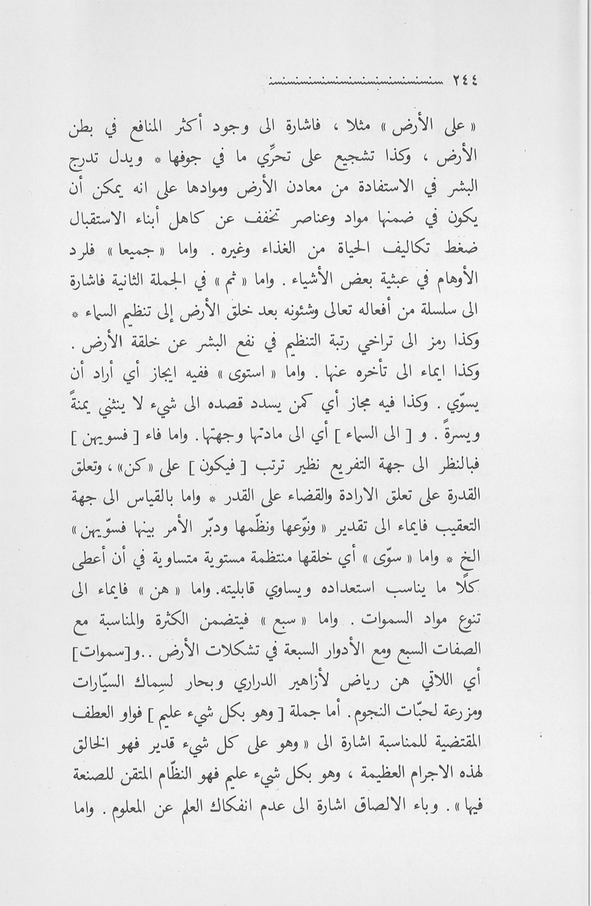 ٢٤٤
« على الأرض » مثلا ، فاشارة الى وجود أكثر المنافع في بطن
الأرض ، وكذا تشجيع على تحرِّي ما في جوفها * ويدل تدرج
البشر في الاستفادة من معادن الأرض وموادها على انه يمكن أن
يكون في ضمنها مواد وعناصر تخفف عن كاهل أبناء الاستقبال
ضغط تكاليف الحياة من الغذاء وغيره . واما « جميعا » فلرد
الأوهام في عبثية بعض الأشياء . واما « ثم » في الجملة الثانية فاشارة
الى سلسلة من أفعاله تعالى وشئونه بعد خلق الأرض إلى تنظيم السماء *
وكذا رمز الى تراخي رتبة التنظيم في نفع البشر عن خلقة الأرض .
وكذا ايماء الى تأخره عنها . واما « استوى » ففيه ايجاز أي أراد أن
يسوّي . وكذا فيه مجاز أي كمن يسدد قصده الى شيء لا ينثني يمنةً
ويسرةً . و [ الى السماء ] أي الى مادتها وجهتها. واما فاء [ فسويهن ]
فبالنظر الى جهة التفريع نظير ترتب [ فيكون ] على « كن» ، وتعلق
القدرة على تعلق الارادة والقضاء على القدر * واما بالقياس الى جهة
التعقيب فايماء الى تقدير « ونوّعها ونظّمها ودبّر الأمر بينها فسوّيهن »
الخ * واما « سوّى » أي خلقها منتظمة مستوية متساوية في أن أعطى
كلًا ما يناسب استعداده ويساوي قابليته. واما « هن » فايماء الى
تنوع مواد السموات . واما « سبع » فيتضمن الكثرة والمناسبة مع
الصفات السبع ومع الأدوار السبعة في تشكلات الأرض ..و[سموات]
أي اللاتي هن رياض لأزاهير الدراري وبحار لسِماك السيّارات
ومزرعة لحبّات النجوم. أما جملة [ وهو بكل شيء عليم ] فواو العطف
المقتضية للمناسبة اشارة الى « وهو على كل شيء قدير فهو الخالق
لهذه الاجرام العظيمة ، وهو بكل شيء عليم فهو النظّام المتقن للصنعة
فيها ». وباء الالصاق اشارة الى عدم انفكاك العلم عن المعلوم . واما